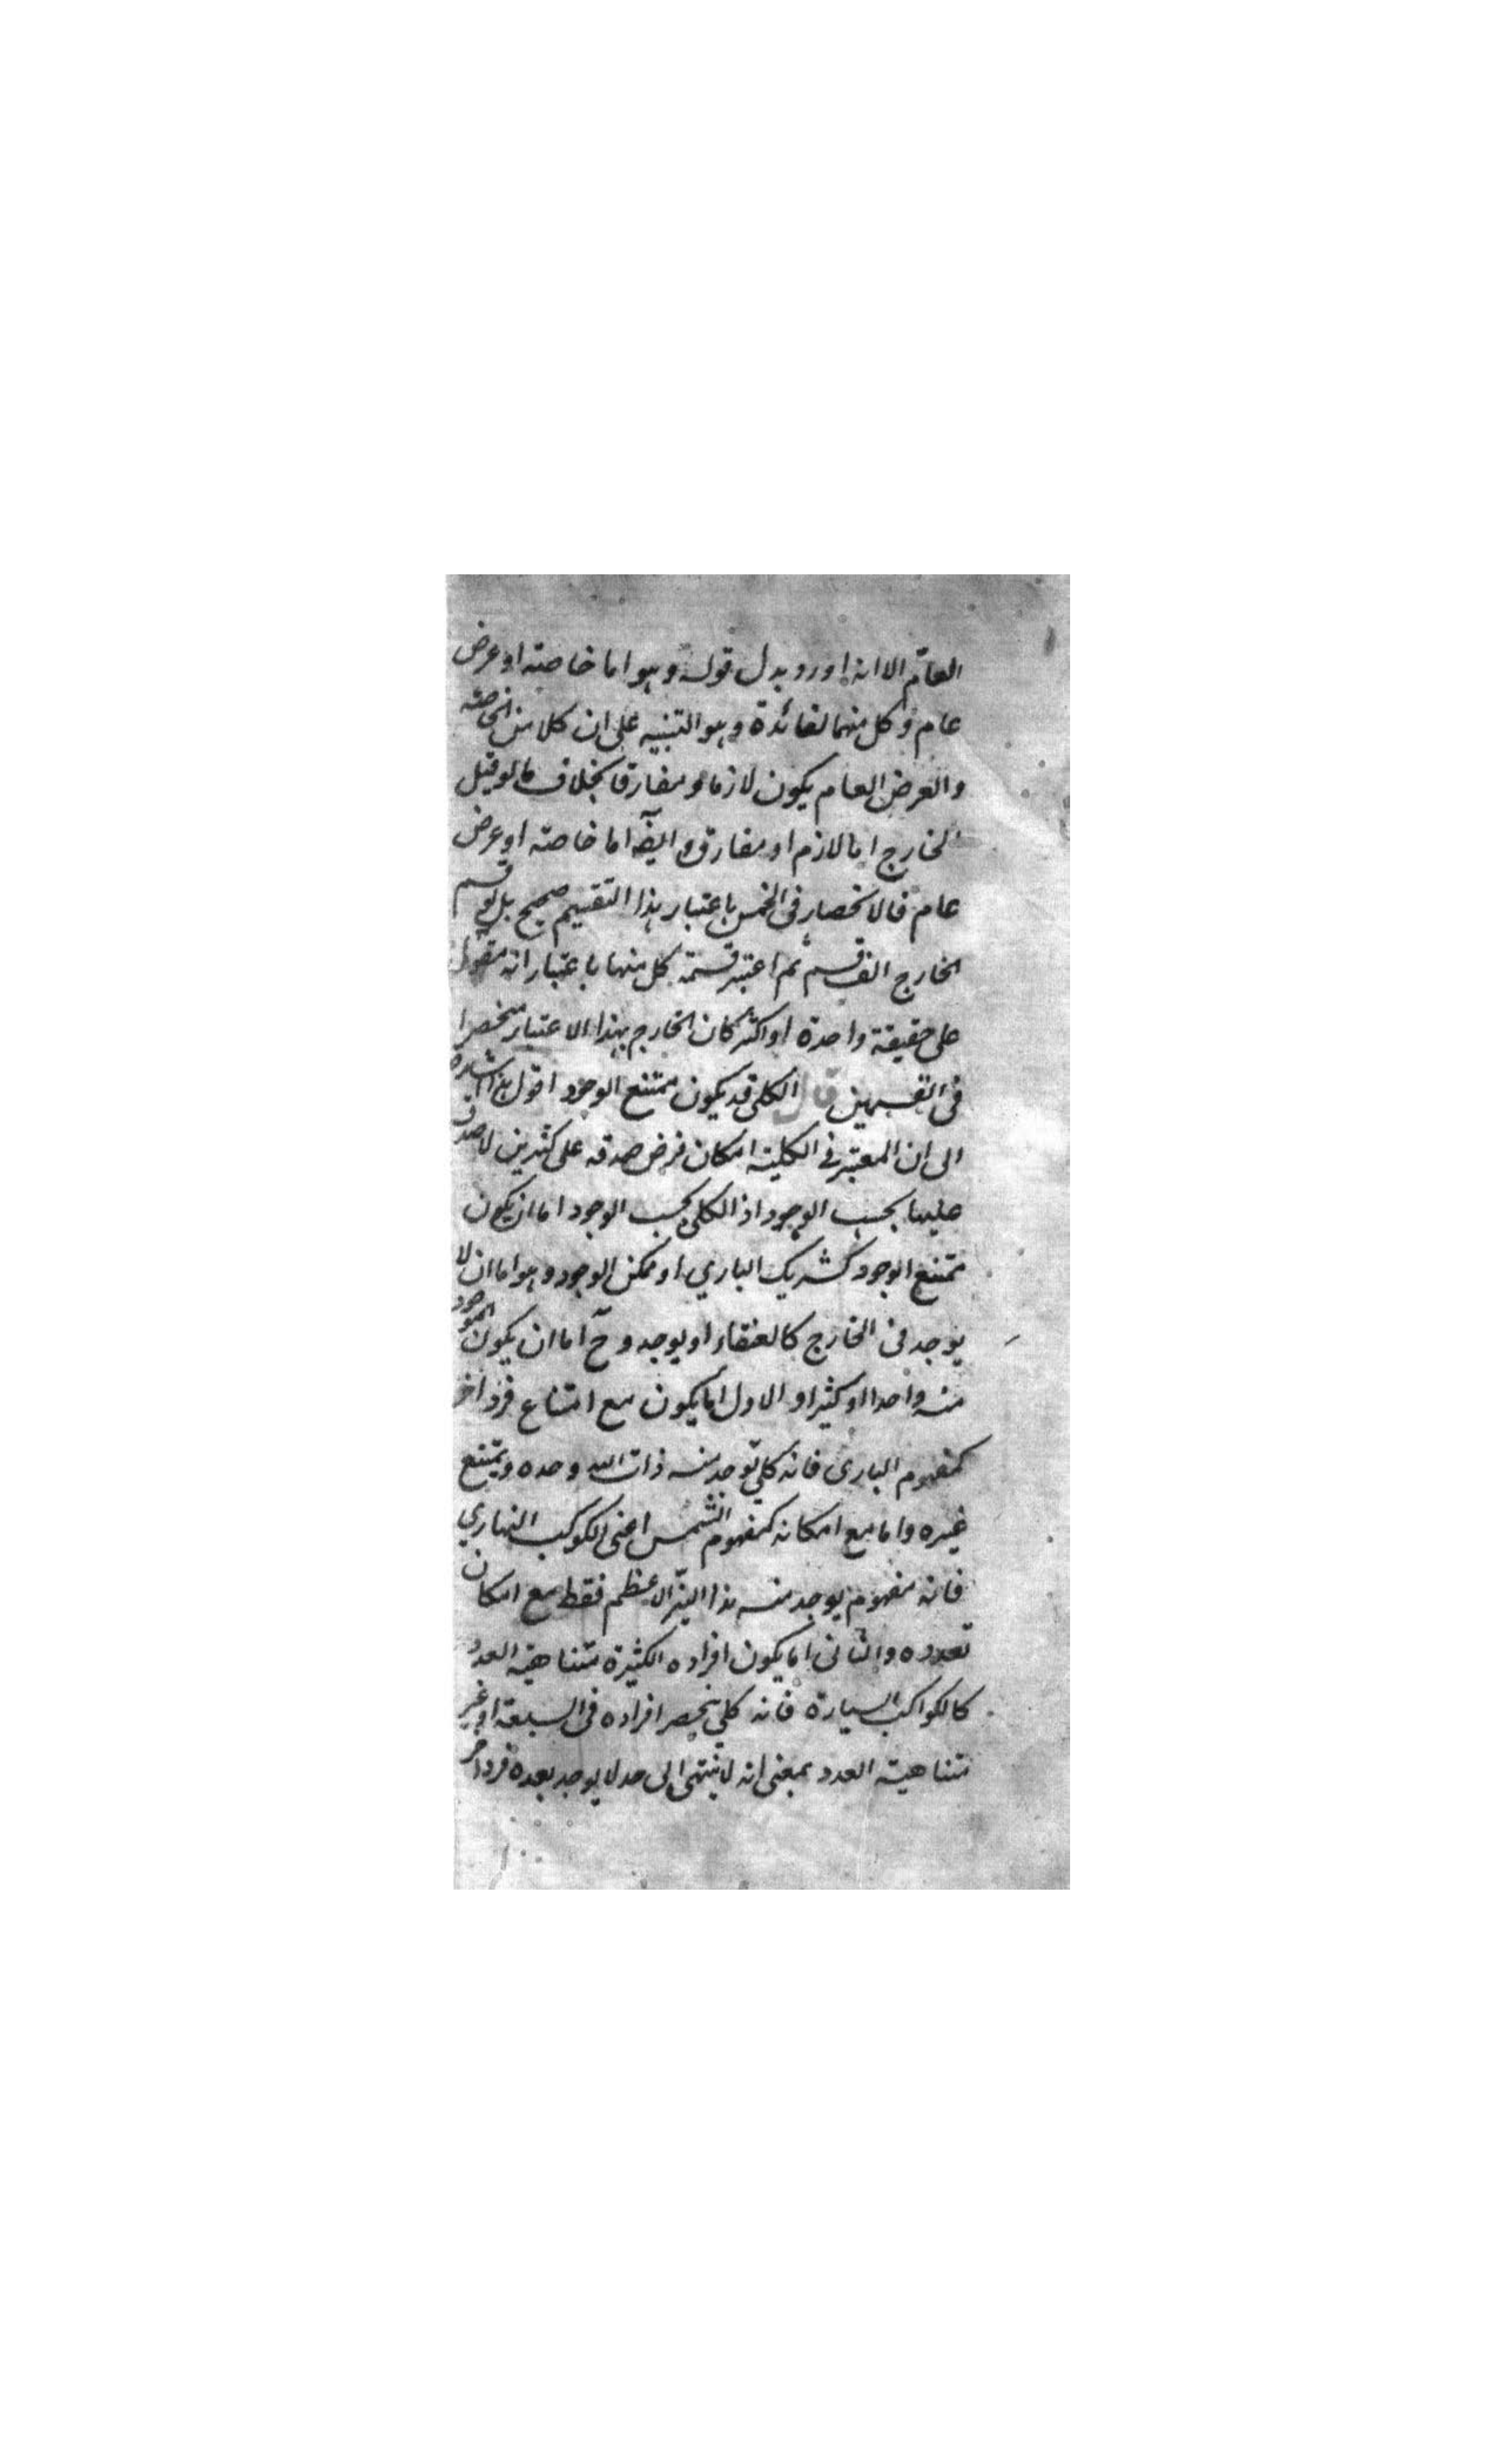 العام الا انه اورد بدل قوله وهو اما خاصة او عرض
عام وكل منهما لفائدة وهو التنبيه على ان كلا من الخاصة
والعرض العام يكون لازما ومفارقا بخلاف ما لو قيل
الخارج اما لازم او مفارق وايضا اما خاصة او عرض
عام فالانحصار في الخمس باعتبار هذا التقسيم صحيح بل لو قسم
الخارج الف قسم ثم اعتبر قسمة كل منها باعتبار انه مقول
على حقيقة واحدة او اكثر كان الخارج بهذا الاعتبار منحصرا
في القسمين قال الكلي قد يكون ممتنع الوجود اقول هذا اشارة
الى ان المعتبر في الكلية امكان فرض صدقه على كثيرين لا صدق
عليها بحسب الوجود اذ الكلي بحسب الوجود اما ان يكون
ممتنع الوجود كشريك الباري او ممكن الوجود وهو اما ان لا
يوجد في الخارج كالعنقاء او يوجد وح اما ان يكون الموجود
منه واحدا او كثيرا والاول اما يكون مع امتناع فرد اخر
كمفهوم الباري فانه كلي توجد منه ذات الله وحده ويمتنع
غيره واما مع امكانه كمفهوم الشمس اعني الكوكب النهاري
فانه مفهوم يوجد منه هذا النير الاعظم فقط مع امكان
تعدده والثاني اما يكون افراده الكثيرة متناهية العدد
كالكواكب السيارة فانه كلي ينحصر افراده في السبعة او غير
متناهية العدد بمعنى انه لا ينتهي الى حد لا يوجد بعده فرد اخر